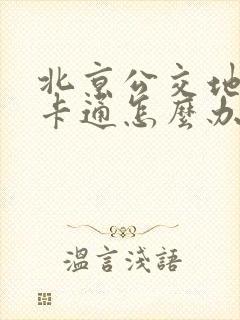 北京公交地
卡通怎麼办
溫言淺語